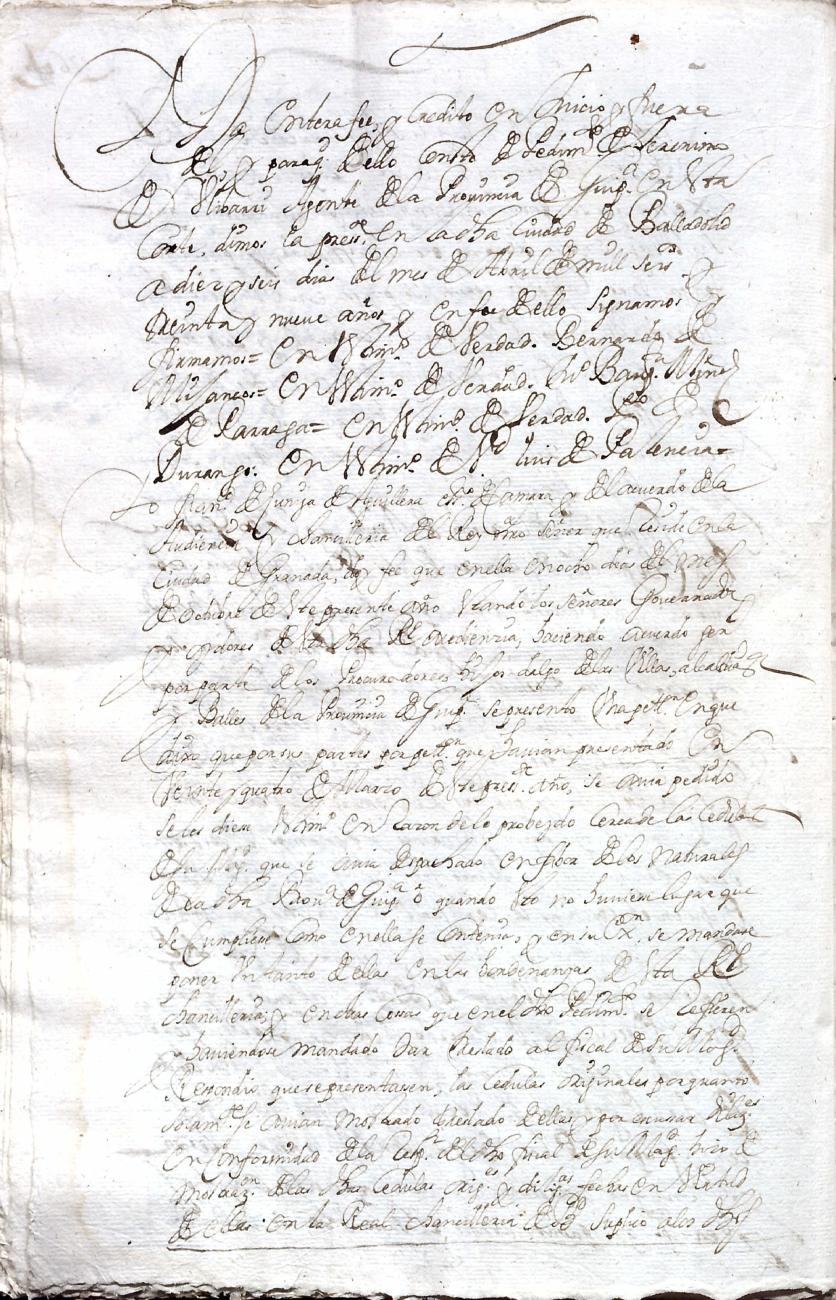 da entera fee, y Credito en Juicio y fuera
del, y para q dello conste de Pedimto de Jeronimo
de Ulibarri Agente de la Provincia de Guipa en esta
Corte, dimos la presste en la dha Ciudad de Balladolid
a diez y seis dias del mes de Abril de mill seiss y
treinta y nueve años y en fee dello signamos y
firmamos= En testimo de Verdad. Bernardo de
En testimo de Verdad. Bauptta Mrnz
de Larraga= En testimo de Verdad. Pedro de
Durango. En testimo de Vd Luis de Palencia=
Yo Franco de Aguilera essno de Camara y del acuerdo de la
Audiencia y chancilleria del Rey nro señor que reside en la
Ciudad de Granada, doy fee que en ella en ocho dias del mes
de octubre de este presente año estando los señores Governador
y oydores de esta dha Rl Audiencia, haciendo acuerdo gen
por parte de los Procuradores hijos dalgo de las Villas, alcaldias
y Balles de la Provincia de Guipa se presento una pettn en que
dixo que por sus partes por pettn que havian presentado en
Veinte y quatro de Marzo de este preste Año, se avia pedido
se les diese testimo en razon de lo probeydo cerca de las Cedulas
de su Magd que se avia despachado en fabor de los naturales
de la dha Prova de Guipa o quando esto no huviese lugar que
se Cumpliese como en ella se contenia, y en su exn, se mandase
poner un tanto de ellas en las hordenanzas de esta Rl
chancilleria, y en otras cossas que en el dho Pedimto se refieren
y haviendose mandado dar treslado al fiscal de su Magd
Respondio que se presentasen las Cedulas originales por quanto
solamte se avian mostrado treslado dellas y por
en conformidad de la Respta del dho fiscal de su Magd hizo
de las dhas Cedulas origes y diligas fechas en virtud
de ellas en la Real chancilleria de Vd suplico a los dhos